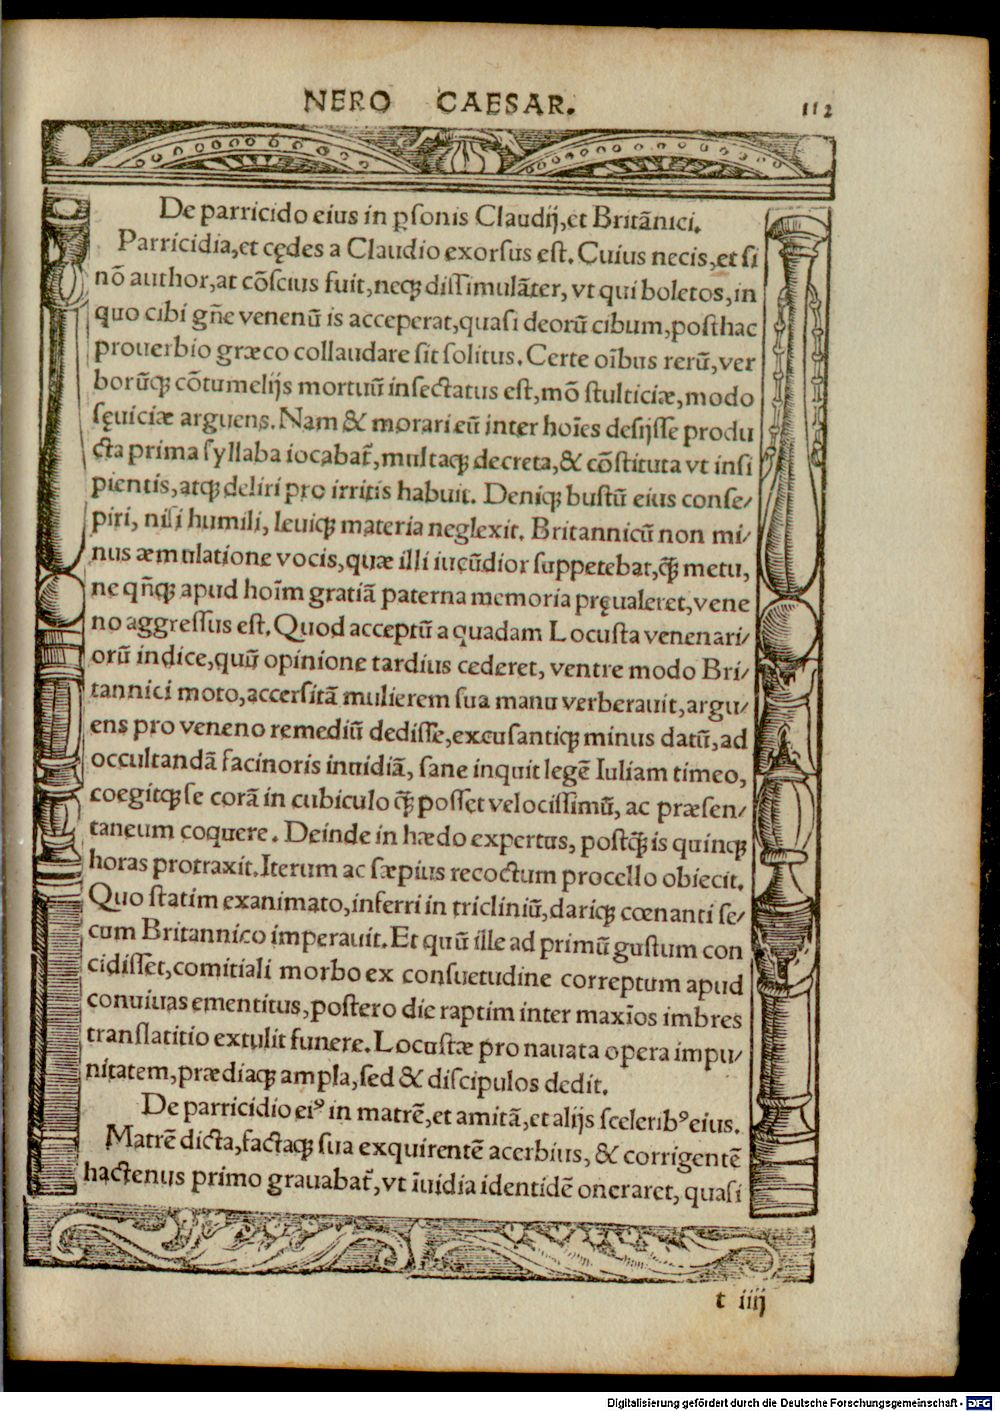 NERO CAESAR. 112
De parricido eius in ꝑsonis Claudij, et Britãnici.
Parricidia, et cędes a Claudio exorsus est. Cuius necis, et si
nõ author, at cõscius fuit, neqꝫ dissimulãter, vt qui boletos, in
quo cibi gñe venenũ is acceperat, quasi deorũ cibum, posthac
prouerbio græco collaudare sit solitus. Certe oĩbus rerũ, ver
borũqꝫ cõtumelijs mortuũ insectatus est, mõ stulticiæ, modo
sęuiciæ arguens. Nam & morari eũ inter hoĩes desijsse produ
cta prima syllaba iocabat̃, multaqꝫ decreta, & cõstituta vt insi
pientis, atqꝫ deliri pro irritis habuit. Deniqꝫ bustũ eius conse/
piri, nisi humili, leuiqꝫ materia neglexit. Britannicũ non mi/
nus æmulatione vocis, quæ illi iucũdior suppetebat, q̃ꝫ metu,
ne qñqꝫ apud hoĩm gratiã paterna memoria pręualeret, vene
no aggressus est. Quod acceptũ a quadam Locusta venenari/
orũ indice, quũ opinione tardius cederet, ventre modo Bri/
tannici moto, accersitã mulierem sua manu verberauit, argu/
ens pro veneno remediũ dedisse, excusantiqꝫ minus datũ, ad
occultandã facinoris inuidiã, sane inquit legẽ Iuliam timeo,
coegitqꝫ se corã in cubiculo q̃ꝫ posset velocissimũ, ac præsen/
taneum coquere. Deinde in hædo expertus, postq̃ꝫ is quinqꝫ
horas protraxit. Iterum ac sæpius recoctum procello obiecit.
Quo statim exanimato, inferri in tricliniũ, dariqꝫ cœnanti se/
cum Britannico imperauit. Et quũ ille ad primũ gustum con
cidisset, comitiali morbo ex consuetudine correptum apud
conuiuas ementitus, postero die raptim inter maxĩos imbres
translatitio extulit funere. Locustæ pro nauata opera impu/
nitatem, prædiaqꝫ ampla, sed & discipulos dedit.
De parricidio eiꝰ in matrẽ, et amitã, et alijs sceleribꝰ eius.
Matrẽ dicta, factaqꝫ sua exquirentẽ acerbius, & corrigentẽ
hactenus primo grauabat̃, vt ĩuidia identidẽ oneraret, quasi
t iiij
Digitalisierung gefördert durch die Deutsche Forschungsgemeinschaft - DFG